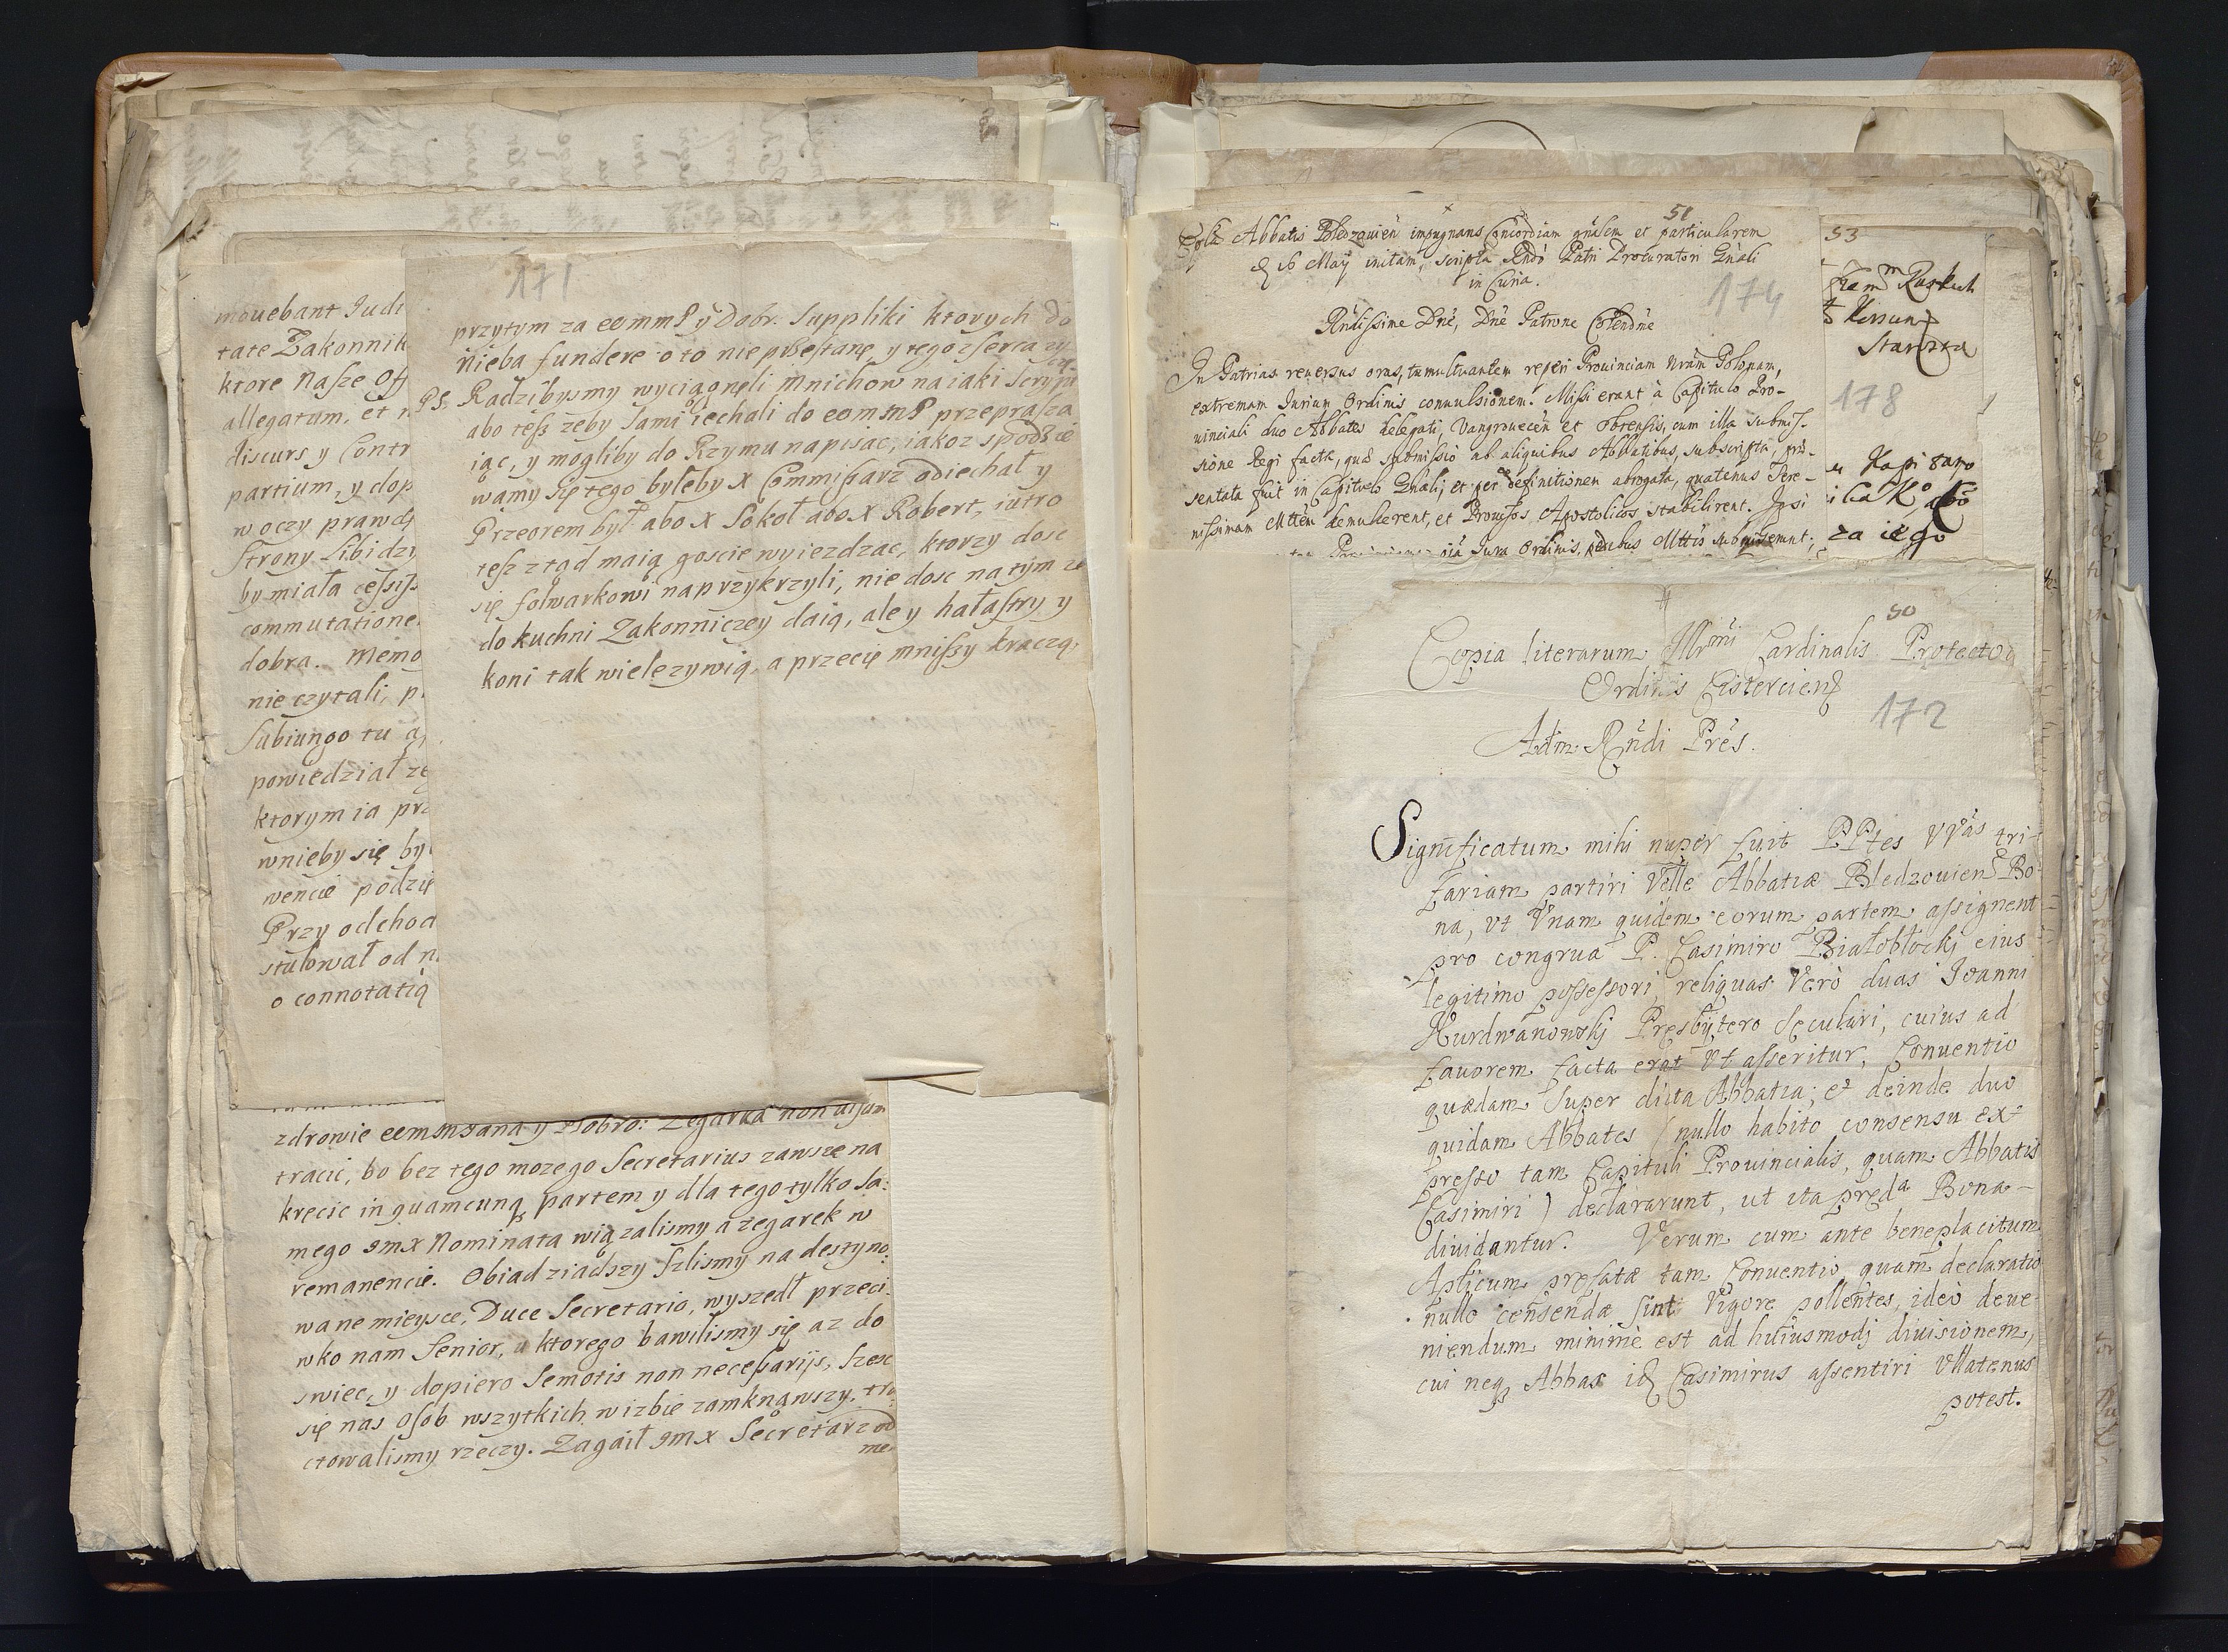 171
mouebant Iudi
tate Zakonnik
ktore Nasze Of
allegatum, et
discurs y Contr
partium, y dop
w oczy prawdę
strony Libidzy
by miała
commutatione
dobra. Memo
nie czytali, p
Subiungo tu
powiedział ze
ktorym ia prz
wnieby się by
wencie podzie
Przy odchod
stulował od n
o connotatią
przytym za eommP y Dobr. Suppliki ktorych do
Nieba fundere o to nieprzestanę, y tego z serca zy
czę
PS. Radzibysmy wyciągnęli Mnichow na iaki Scryp
abo tesz zeby sami iechali do eommP przeprasza
iąc, y mogliby do Rzymu napisac, iakoz spodzie
wamy się tego byleby X Commissarz odiechał y
Przeorem był abo X Sokoł abo X Robert, iutro
tesz ztąd maią goscie wyiezdzac, ktorzy dosc
się folwarkowi naprzykrzyli, nie dosc na tym ze
do kuchni Zakonniczey daią, ale y hałastry y
koni tak wiele zywią, a przecię mnissy kraczą.
zdrowie y Dobro: Zegarka non
tracic, bo bez tego moze go Secretarius zawsze na
kręcic in quamcunq partem y dla tego tylko sa:
mego JmX Nominata wiązalismy a zegarek w
remanencie. Obiad ziadszy szlismy na destyno:
wane mieysce, Duce Secretario, wyszedł przeci:
wko nam Senior, u ktorego bawilismy się az do
swiec, y dopiero Semotis non necessarijs, szesc
się nas osob wszytkich w izbie zamknąwszy. tra
ctowalismy rzeczy. Zagaił JmX Secretarz od
me
51
Abbatis Bledzouien impugnans Concordiam gnalem et particularem
16 May initam, scripta Rndo Patri Procuratori Gnali
in Curia.
174
Rndissime Dne, Dne Patrone Colendne
In Patrias reuersus oras, tumultuantem reperi Prouinciam nram Polonam,
extremam Iurium Ordinis conuulsionem. Missi erant à Capitulo Pro-
uinciali duo Abbates delegati, Vangrouecen et Obrensis, cum illa submis-
sione Regi facta, quæ submissio ab aliquibus Abbatibus, subscripta, præ-
sentata fuit in Capitulo Gnali, et per definitionem abrogata, quatenus Sere-
nissimam Mttem demulcerent, et Prouisos Apostolicos stabilirent. Ipsi
Iura Ordinis, pedibus Mttis submiserunt;
53
Starosta
178
za iego
50
Copia literarum Illrmi Cardinalis Protector
Ordinis Cisterciens
172
Adm. Rndi Pres.
Significatum mihi nuper fuit PPtes VVas tri-
fariam partiri Velle Abbatiæ Bledzouiens Bo-
na, vt Vnam quidem eorum partem assignent
pro congrua P. Casimiro Białobłocki eius
legitimo possessori, reliquas Verò duas Ioanni
Hurdwanowskj Presbytero Seculari, cuius ad
fauorem facta erat vt asseritur, Conuentio
quædam super dicta Abbatia; et deinde duo
quidam Abbates (nullo habito consensu ex-
presso tam Capituli Prouincialis, quam Abbatis
Casimiri) declararunt, ut ita preda Bona-
diuidantur. Verum cum ante beneplacitum
Aplicum prefatæ tam Conuentio quam declaratio
nullo censendæ sint Vigore pollentes, ideò deue-
niendum minimè est ad huiusmodj diuisionem,
cui neq Abbas id Casimirus assentiri Vllatenus
potest.